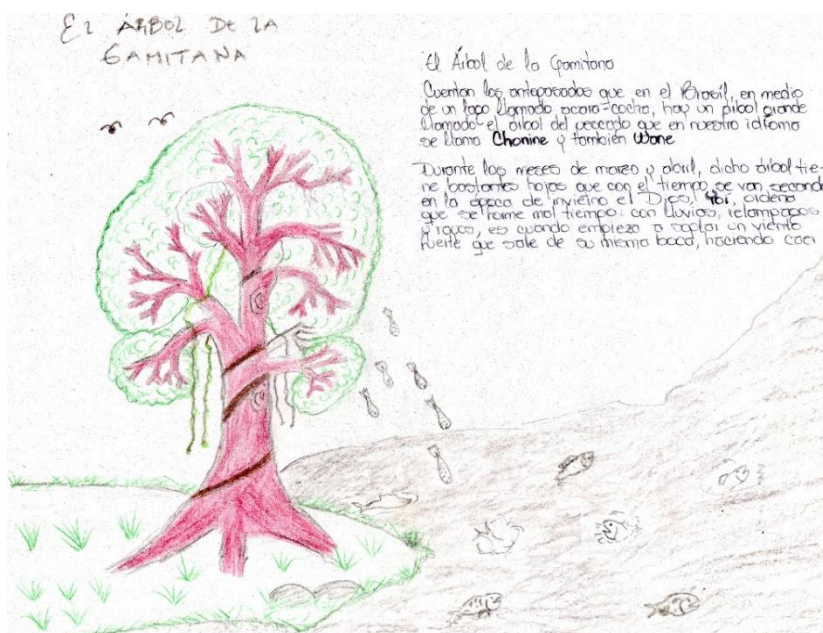 El ÁRBOL DE LA
GAMITANA
El Árbol de la Gamitana
Cuentan los antepasados que en el Brasil, en medio
de un lago llamado acara-cocha, hay un árbol grande
llamado el árbol del pescado que en nuestro idioma
se llama Chonine y también Wone
Durante los meses de marzo y abril, dicho árbol tie-
ne bastantes hojas que con el tiempo se van secando
en la época de invierno el Dios, ordena
que se forme mal tiempo: con lluvias, relámpagos
y rayos, es cuando empieza a soplar un viento
fuerte que sale de su misma boca, haciendo caer